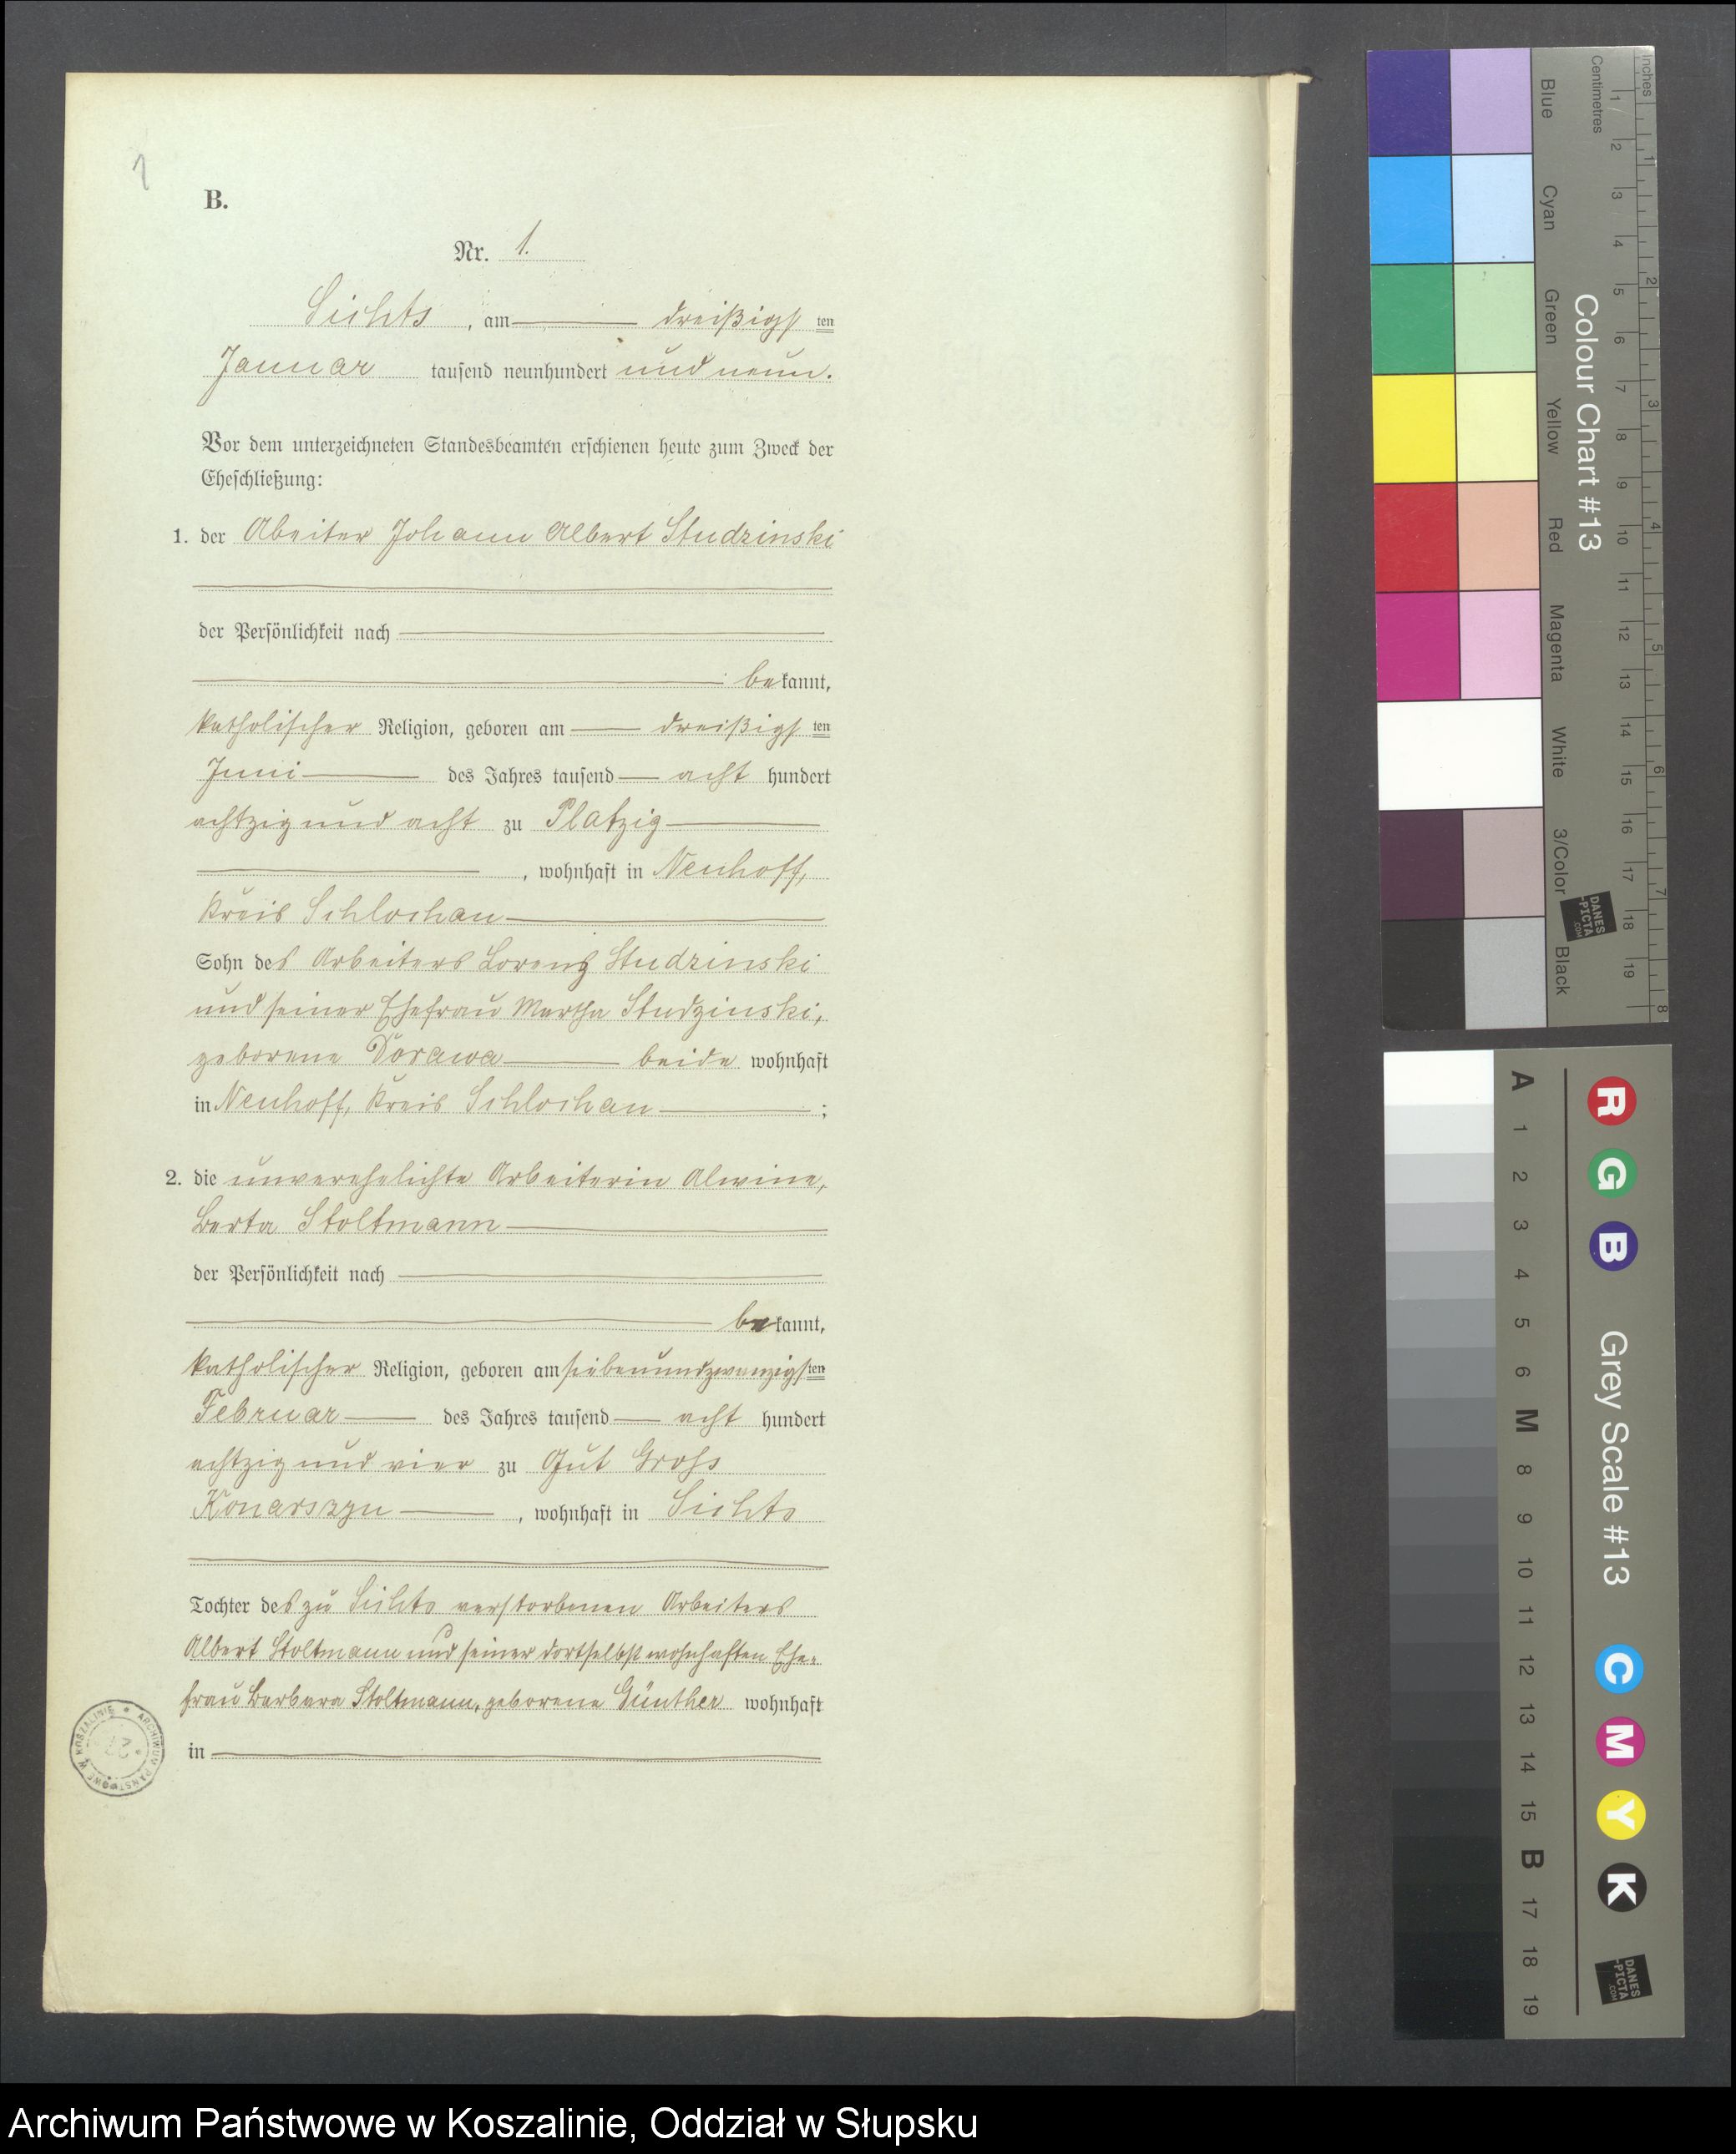 1
B.
Nr. 1.
Sichts, am dreißigsten
Januar tausend neunhundert und neun.
Vor dem unterzeichneten Standesbeamten erschienen heute zum Zweck der
Eheschließung:
1. der Abeiter Johann Albert Studzinski
der Persönlichkeit nach
bekannt,
katholischer Religion, geboren am dreißigsten
Juni des Jahres tausend acht hundert
achtzig und acht zu Platzig
, wohnhaft in Neuhoff,
Kreis Schlochau
Sohn des Arbeiters Lorenz Studzinski
und seiner Ehefrau Martha Studzinski,
geborene Dorawa beide wohnhaft
in Neuhoff, Kreis Schlochau ;
2. die unverehelichte Arbeiterin Alwine,
Berta Stoltmann
der Persönlichkeit nach
bekannt,
katholischer Religion, geboren am siebenundzwanzigsten
Februar des Jahres tausend acht hundert
achtzig und vier zu Gut Gross
Konarszyn , wohnhaft in Sichts
Tochter des zu Sichts verstorbenen Arbeiters
Albert Stoltmann und seiner dortselbst wohnhaften Ehe-
frau Barbara Stoltmann, geborene Günther wohnhaft
in
ARCHIWUM PAŃSTWOWE W KOSZALINIE
Inches
Centimetres
1 2 3 4 5 6 7 8 9 10 11 12 13 14 15 16 17 18 19
1 2 3 4 5 6 7 8
Colour Chart #13
Blue
Cyan
Green
Yellow
Red
Magenta
White
3/Color
Black
DANES
-PICTA
.COM
A 1 2 3 4 5 6 M 8 9 10 11 12 13 14 15 B 17 18 19
R G B
Grey Scale #13
C M Y K
DANES
-PICTA
.COM
Archiwum Państwowe w Koszalinie, Oddział w Słupsku